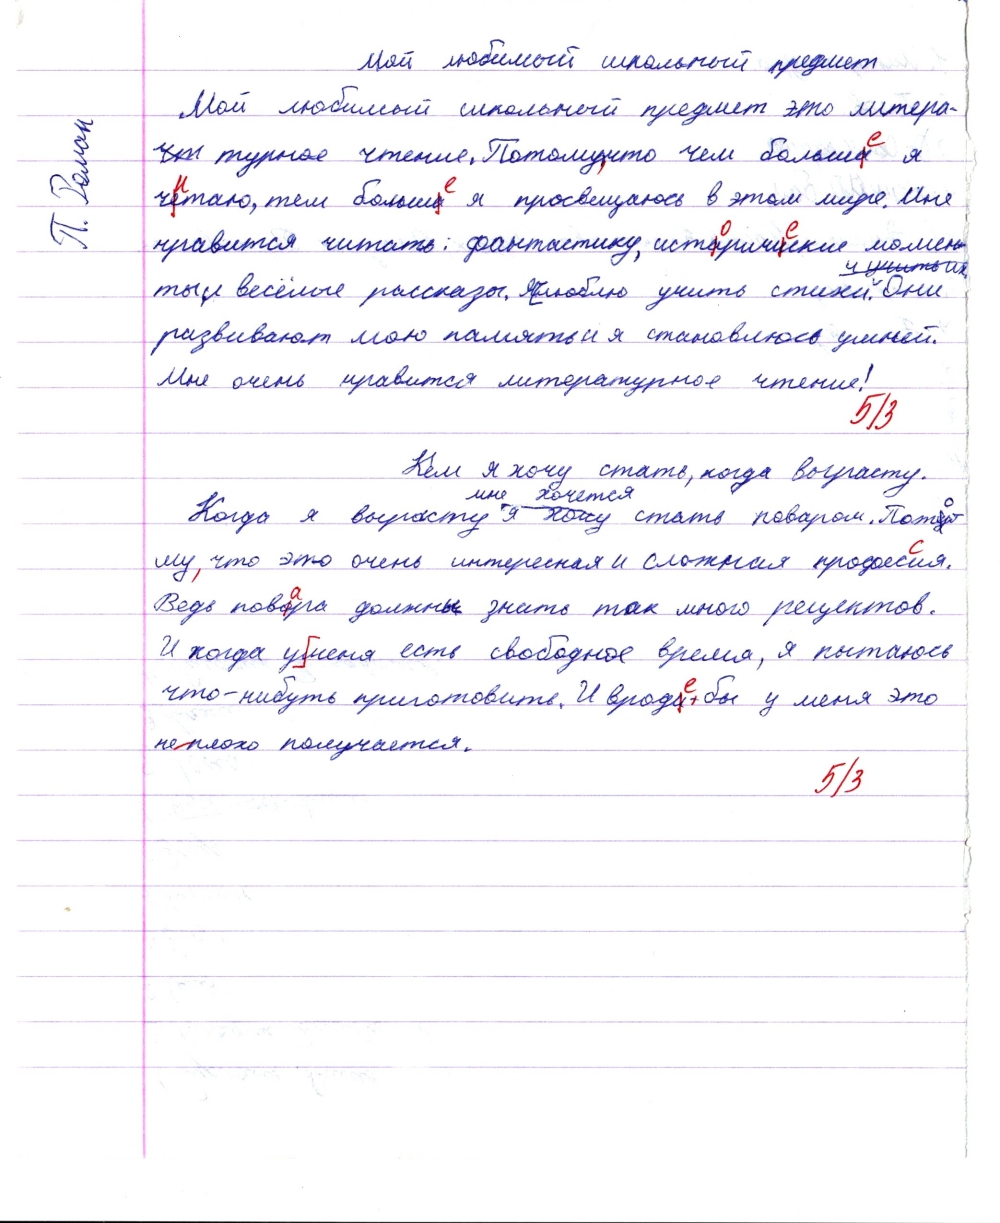 П. Роман
Мой любимый школьный предмет
Мой любимый школьный предмет это литера-
турное чтение. Потому, что чем больше я
читаю, тем больше я просвещаюсь в этом мире. Мне
нравится читать: фантастику, исторические момен-
ты и весёлые рассказы. Я люблю учить стихи. Они
развивают мою память и я становлюсь умней.
Мне очень нравится литературное чтение!
5/3
Кем я хочу стать, когда выграсту.
мне хочется
Когда я выграсту я хочу стать поваром. Пото
му, что это очень интересная и сложная профессия.
Ведь повара должны знать так много рецептов.
И когда у меня есть свободное время, я пытаюсь
что-нибуть приготовить. И вроде бы у меня это
неплохо получается.
5/3